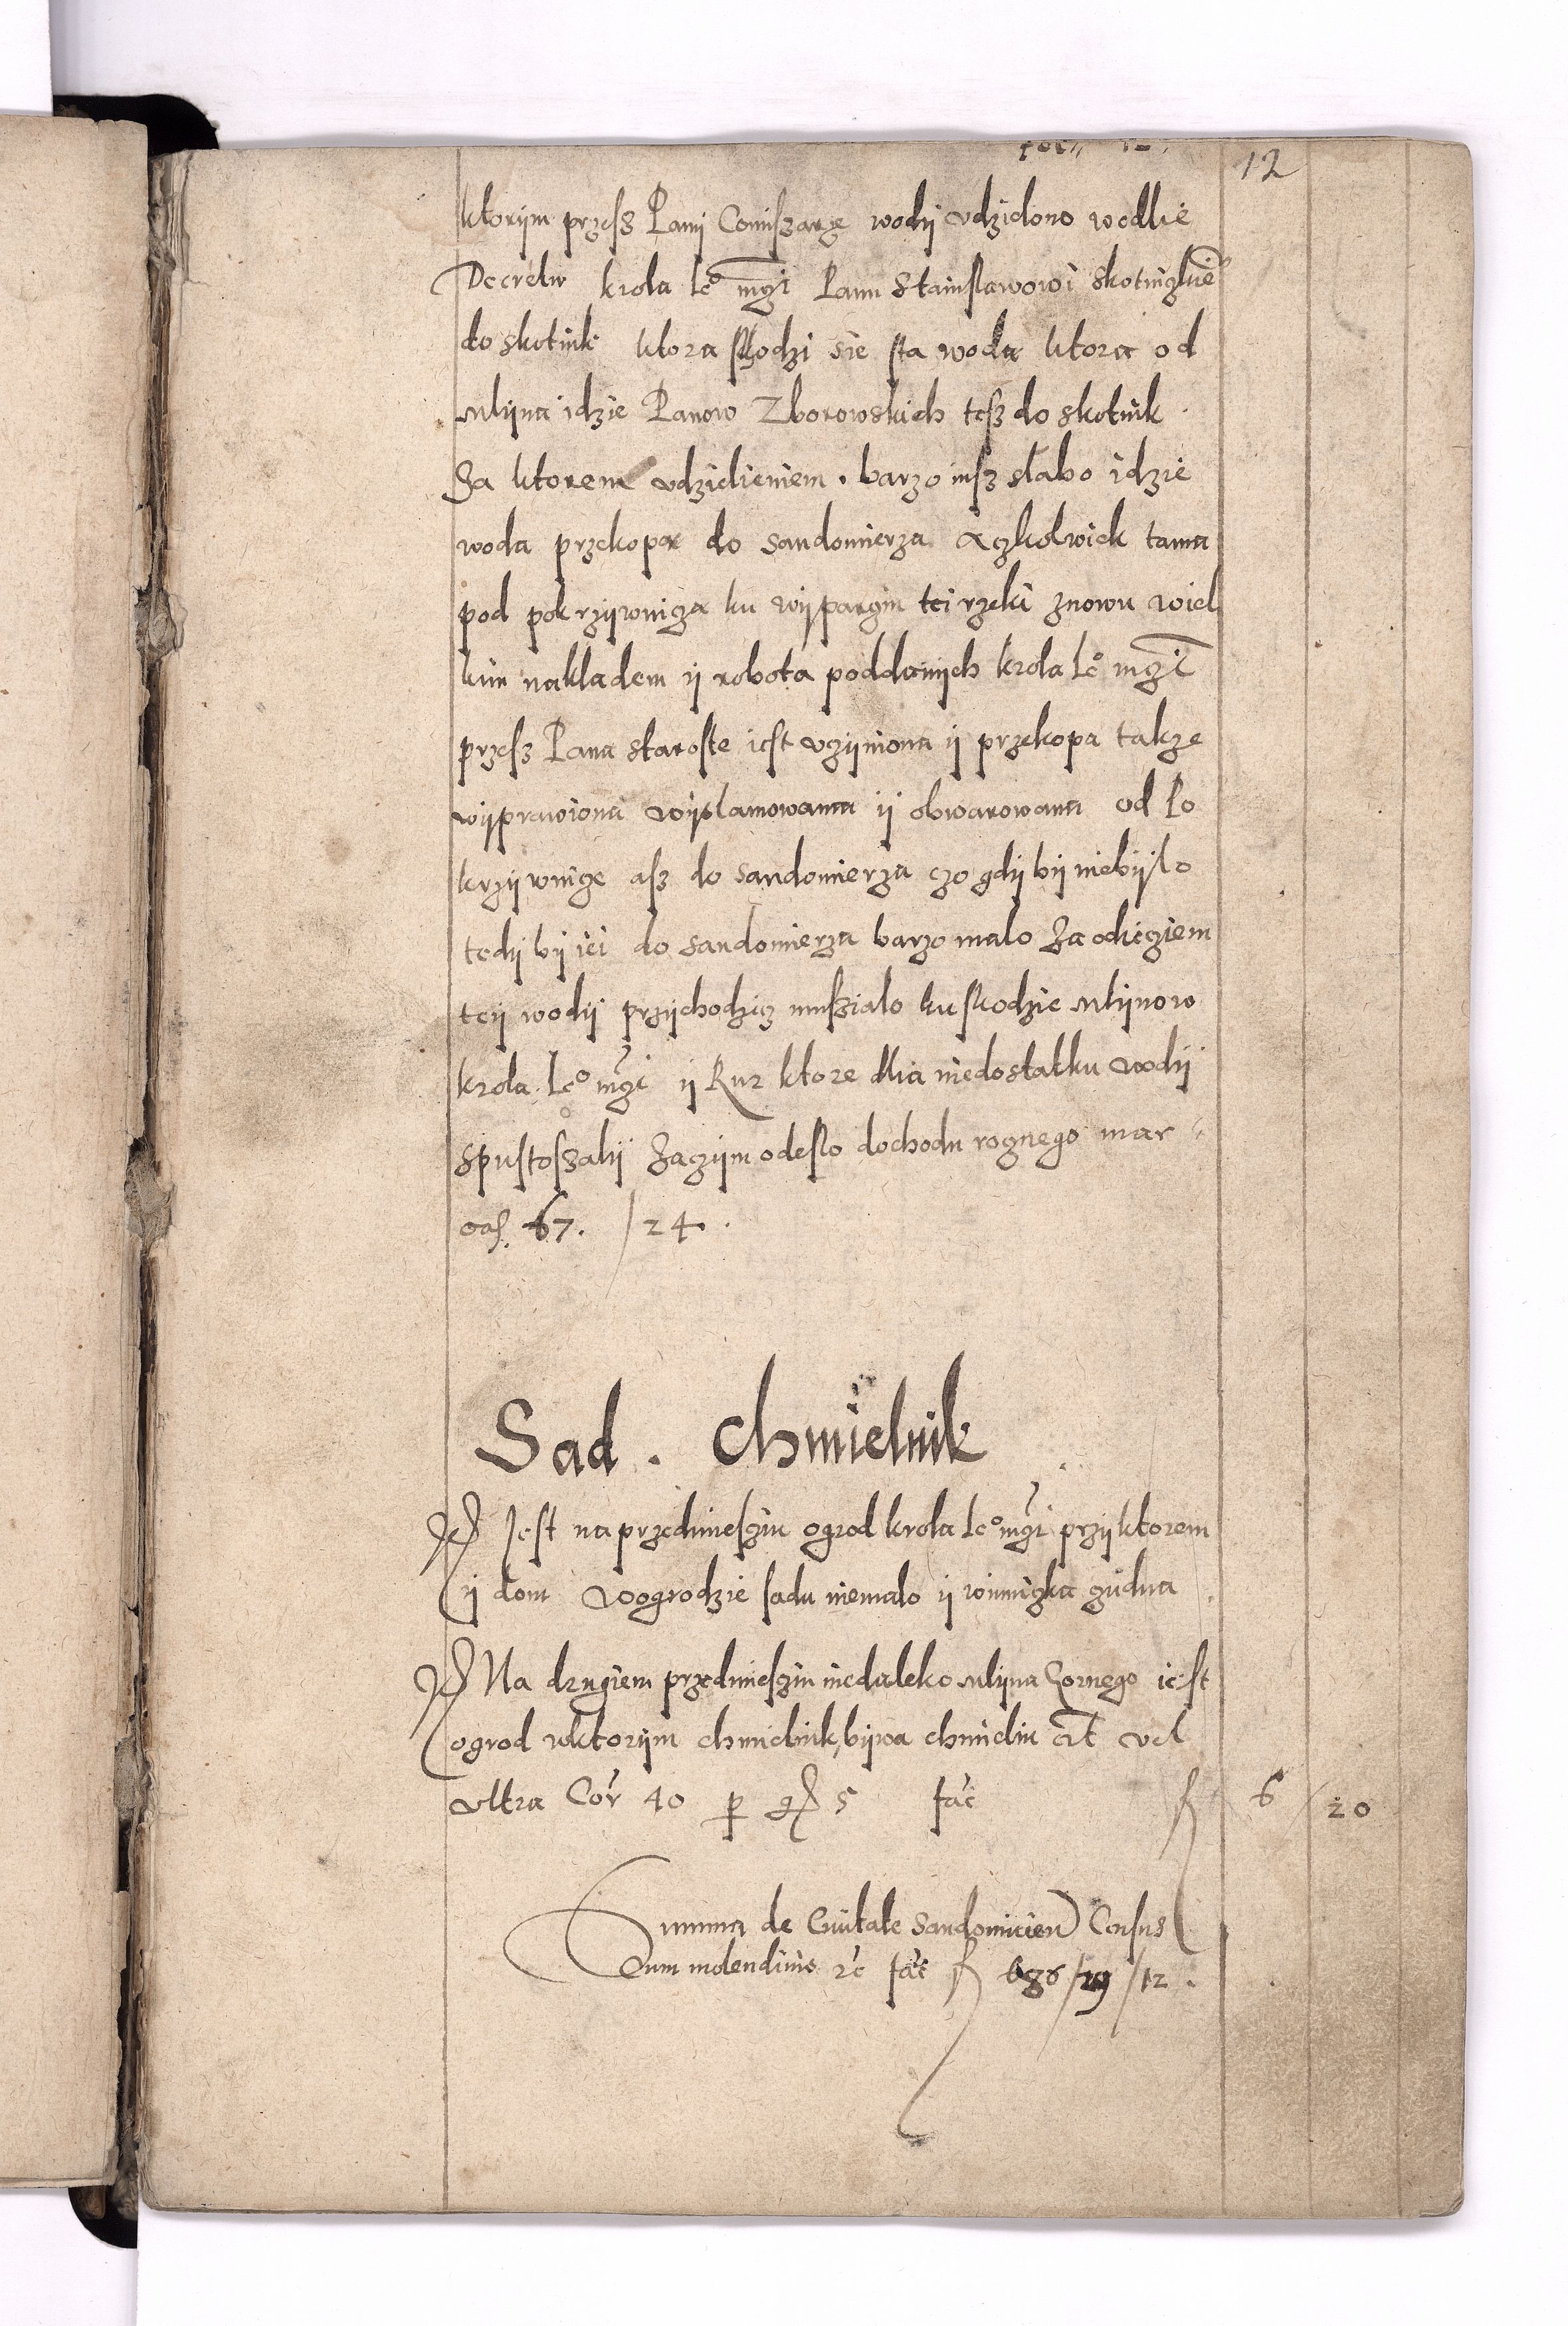 12
ktorijm przesz Panij Comiszarze wodij vdzielono wedlie
Decretw krola Ieº mczi Panu Stanislawowi skotniczkieº
do skotnik ktora schodzi sie sta woda ktora od
mlijna idzie Panow Zborowskich tesz do skotnik
Za ktorem vdzielieniem . barzo iusz slabo idzie
woda przekopa do Sandomierza Aczkolwiek tama
pod pokrzijwnicza ku wijparczin tei rzeki znowu wiel
kim nakladem ij robota poddanijch krola Ieº mczi
przesz Pana staroste iest vczijniona ij przekopa takze
wijprawiona wijslamowanna ij obwarowana od Po
krzijwnicze asz do Sandomierza czo gdij bij niebijlo
tedij bij iei do Sandomierza barzo malo Za odieciem
teij wodij przijchodzicz musialo ku skodzie mlijnow
krola Ieº mczi ij Rur ktore dlia niedostatku wodij
spustoszalij Zaczijm odeslo dochodu rocznego mar
cas. 67. / 24 .
Sad . Chmielnik
Jest na przedmiesziu ogrod krola Ieº mczi przij ktorem
ij dom wogrodzie sadu niemalo ij winniczka cudna
Na drugiem przedmiesziu niedaleko mlijna Gornego iest
ogrod wktorijm chmielnik, bijwa chmieliu att vel
vltra Cor 40 p gr 5 fac fl 6 / 20
Summa de Ciuitate Sandomirien Census
Cum molendinis etc fac fl 686 / 29 / 12 .